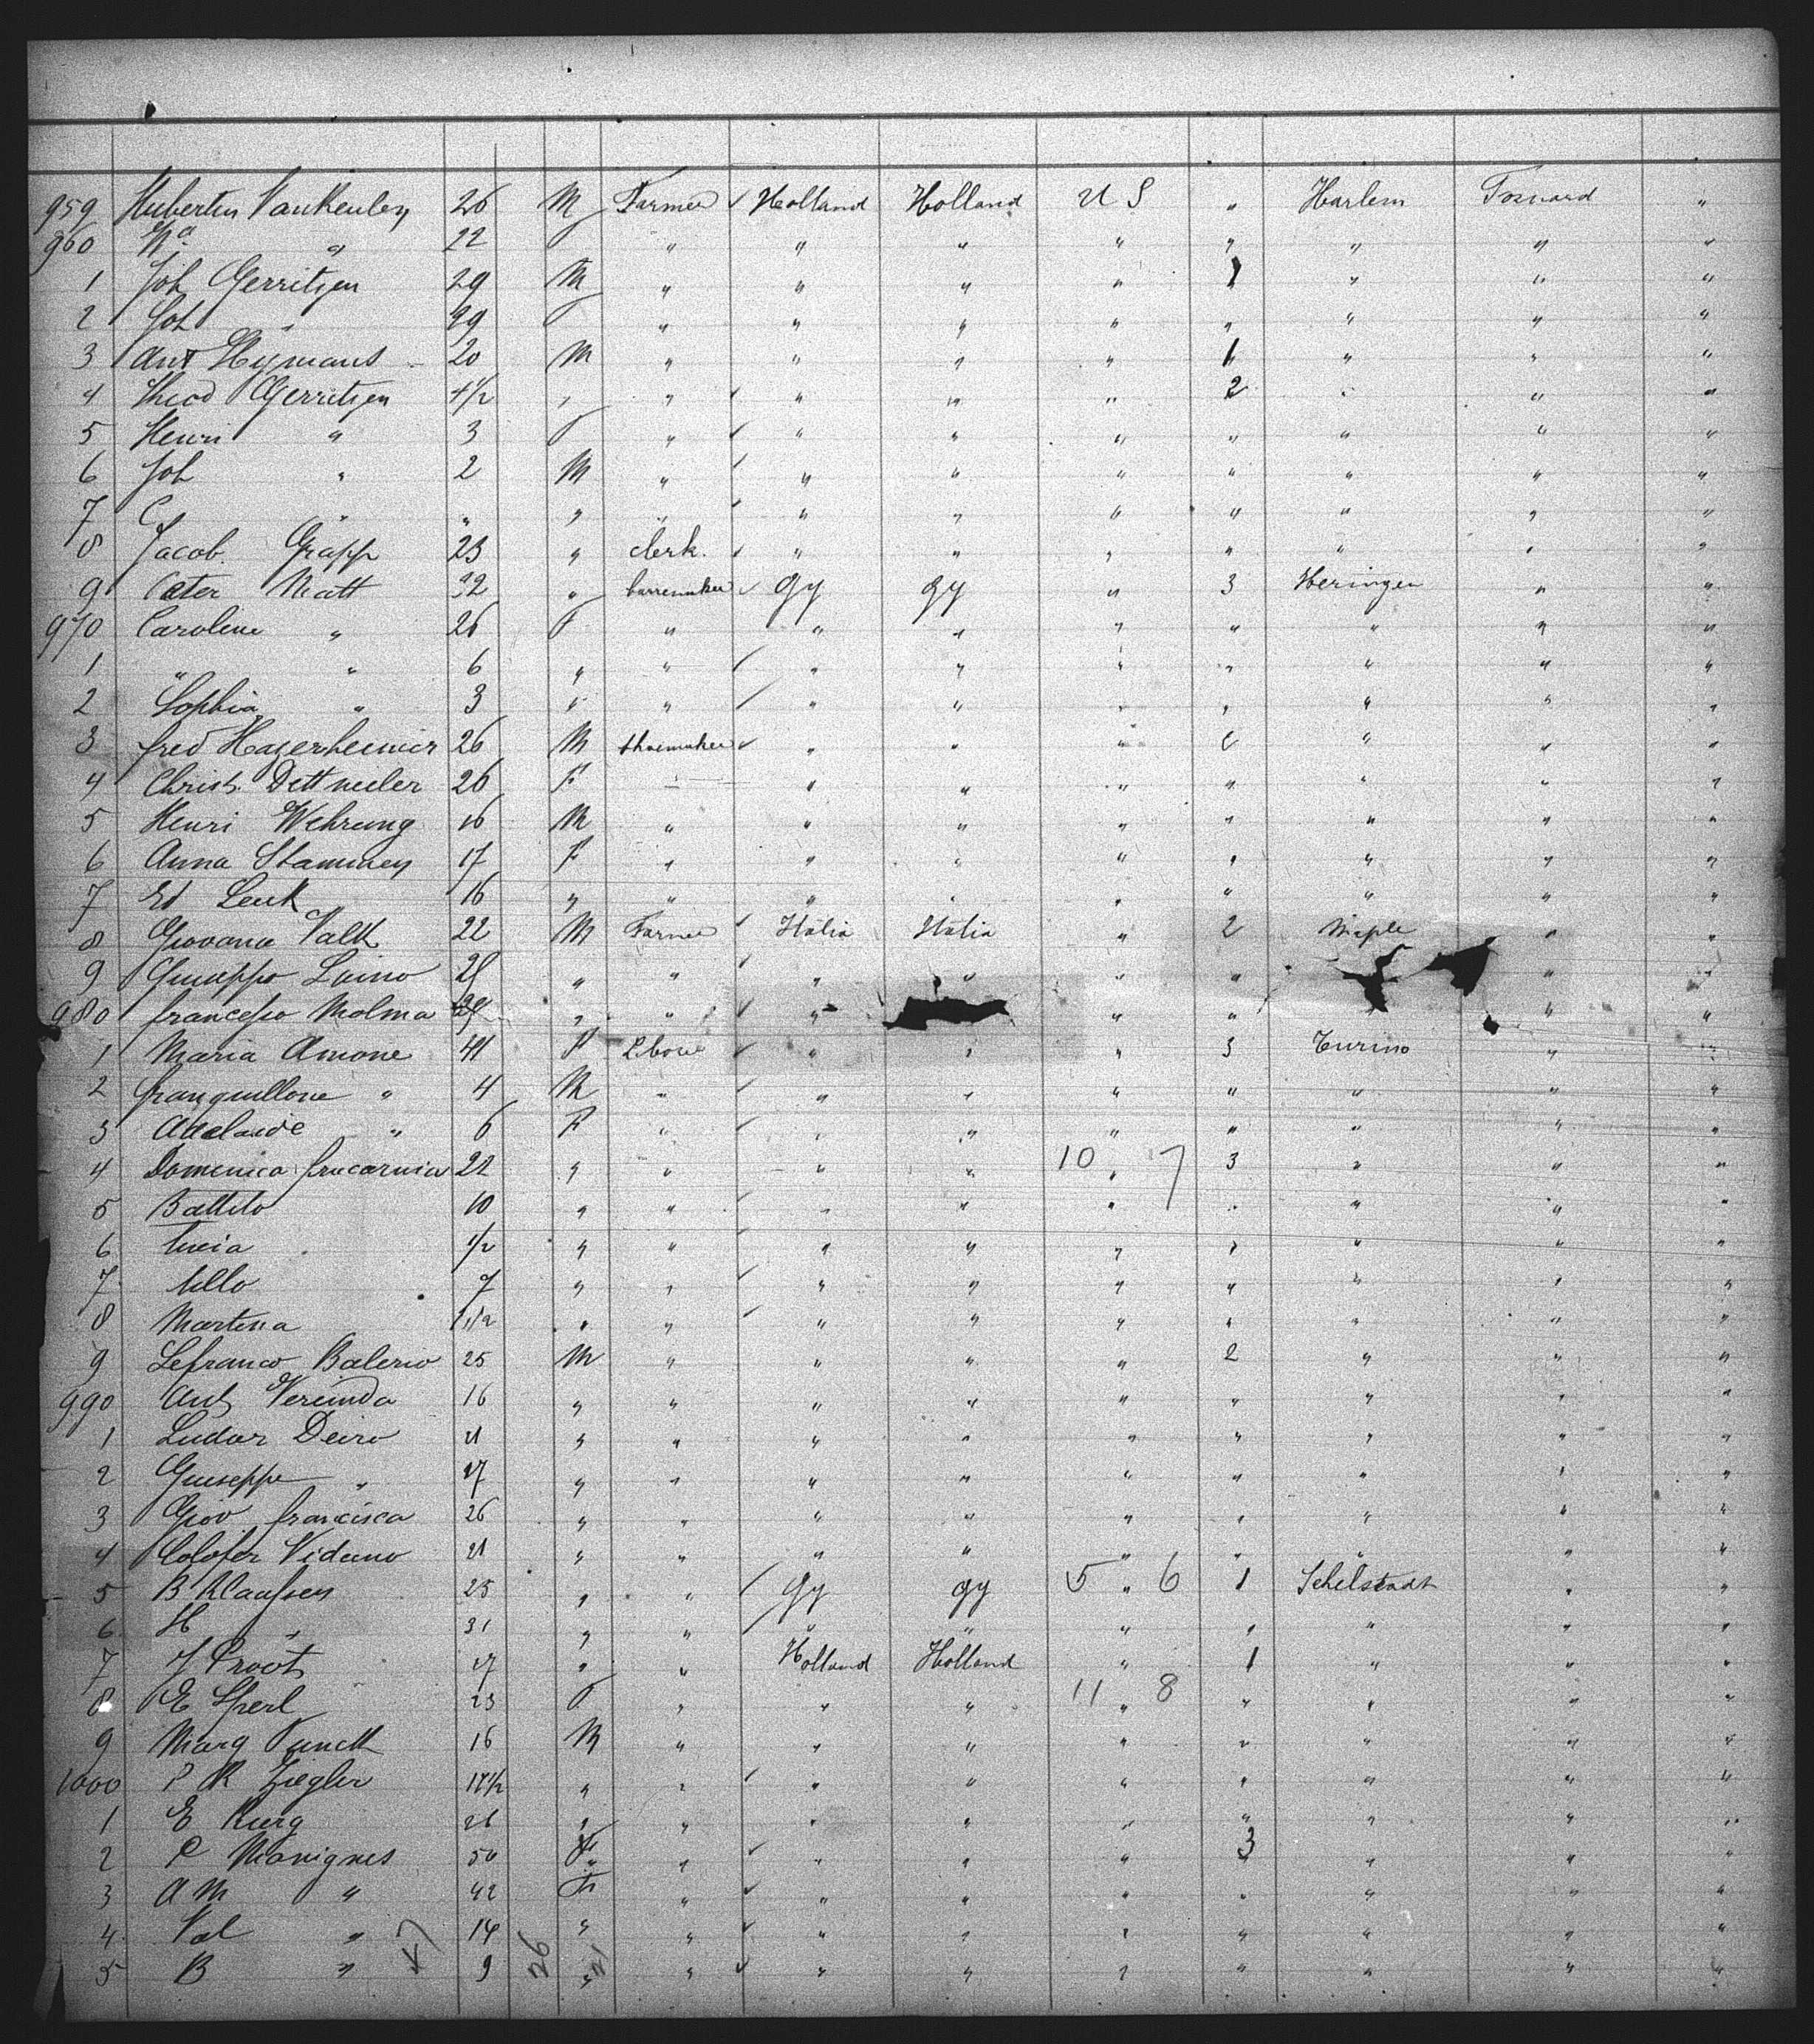 959 Hubertus Vankeuley 26 M Farmer ✓ Holland Holland U S " Harlem Forward "
960 " 22 F " " " " " " " "
1 Joh Gerritzen 29 M " " " " 1 " " "
2 Joh " 29 F " " " " " " " "
3 Ant Hymans 20 M " " " " 1 " " "
4 Theod Gerritzen 4 1/2 " " ✓ " " " 2 " " "
5 Henri " 3 F " ✓ " " " " " " "
6 Joh " 2 M " ✓ " " " " " " "
7 C " " " " ✓ " " " " " " "
8 Jacob Grapp 23 " clerk. ✓ " " " " " " "
9 Peter Matt 32 " ✓ Gy Gy " 3 Heringen " "
970 Caroline " 26 F " " " " " " " "
1 " " 6 " " ✓ " " " " " " "
2 Sophia " 3 " " ✓ " " " " " " "
3 fred Hagerheimer 26 M shoemaker ✓ " " " " " "
4 Christ. Dettweiler 26 F — " " " " " " "
5 Henri Wehrung 16 M " " " " " " " "
6 Anna Stamminey 17 F " " " " " " " "
7 Ed Leuk 16 " " " " " " " " "
8 Giovana Valk 22 M Farmer ✓ Italia Italia " 2 " "
9 Guiseppo Laino " " ✓ " " " " " "
980 francesco Molma " " ✓ " " " " "
1 Maria Amone 41 F ✓ " " " 3 Turino " "
2 franquillone " 4 M " ✓ " " " " " " "
3 Adelaide " 6 F " ✓ " " " " " " "
4 Domenica frucarnia 22 " " " " 10 " 7 3 " " "
5 Battito 10 " " ✓ " " " " " " "
6 lucia 1/2 " " ✓ " " " " " " "
7 7 " " ✓ " " " " " " "
8 Martina 1 1/2 " " ✓ " " " " " " "
9 Lefranco Balerio 25 M " " " " 2 " " "
990 Ant Vercinda 16 " " " " " " " " "
1 Ludor Deiro 21 " " " " " " " " "
2 Guiseppe " 17 " " " " " " " " "
3 Giov francisca 26 " " " " " " " " "
4 Colofer Vidano 21 " " " " " " " " "
5 B Klaassen 25 " " ✓ Gy Gy 5 " 6 1 Schelstadt " "
6 H " 31 " " ✓ " " " " " " "
7 J Proot 17 " " Holland Holland " 1 " " "
8 E Sperl 23 F " " " 11 " 8 " " " "
9 Marg Punck 16 M " " " " " " " "
1000 P K Ziegler " " ✓ " " " " " " "
1 E Kurg 26 " " " " " " " " "
2 P Monignes 50 F " ✓ " " " 3 " " "
3 A M " 42 F " ✓ " " " " " " "
4 Val " 14 " " ✓ " " " " " " "
5 B " 47 9 26 21 " " ✓ " " " " " " "